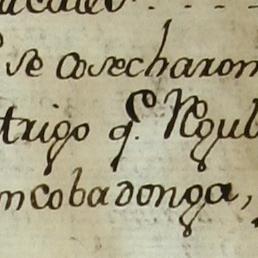 se cosecharon
trigo q.e Regul
encobadonga,